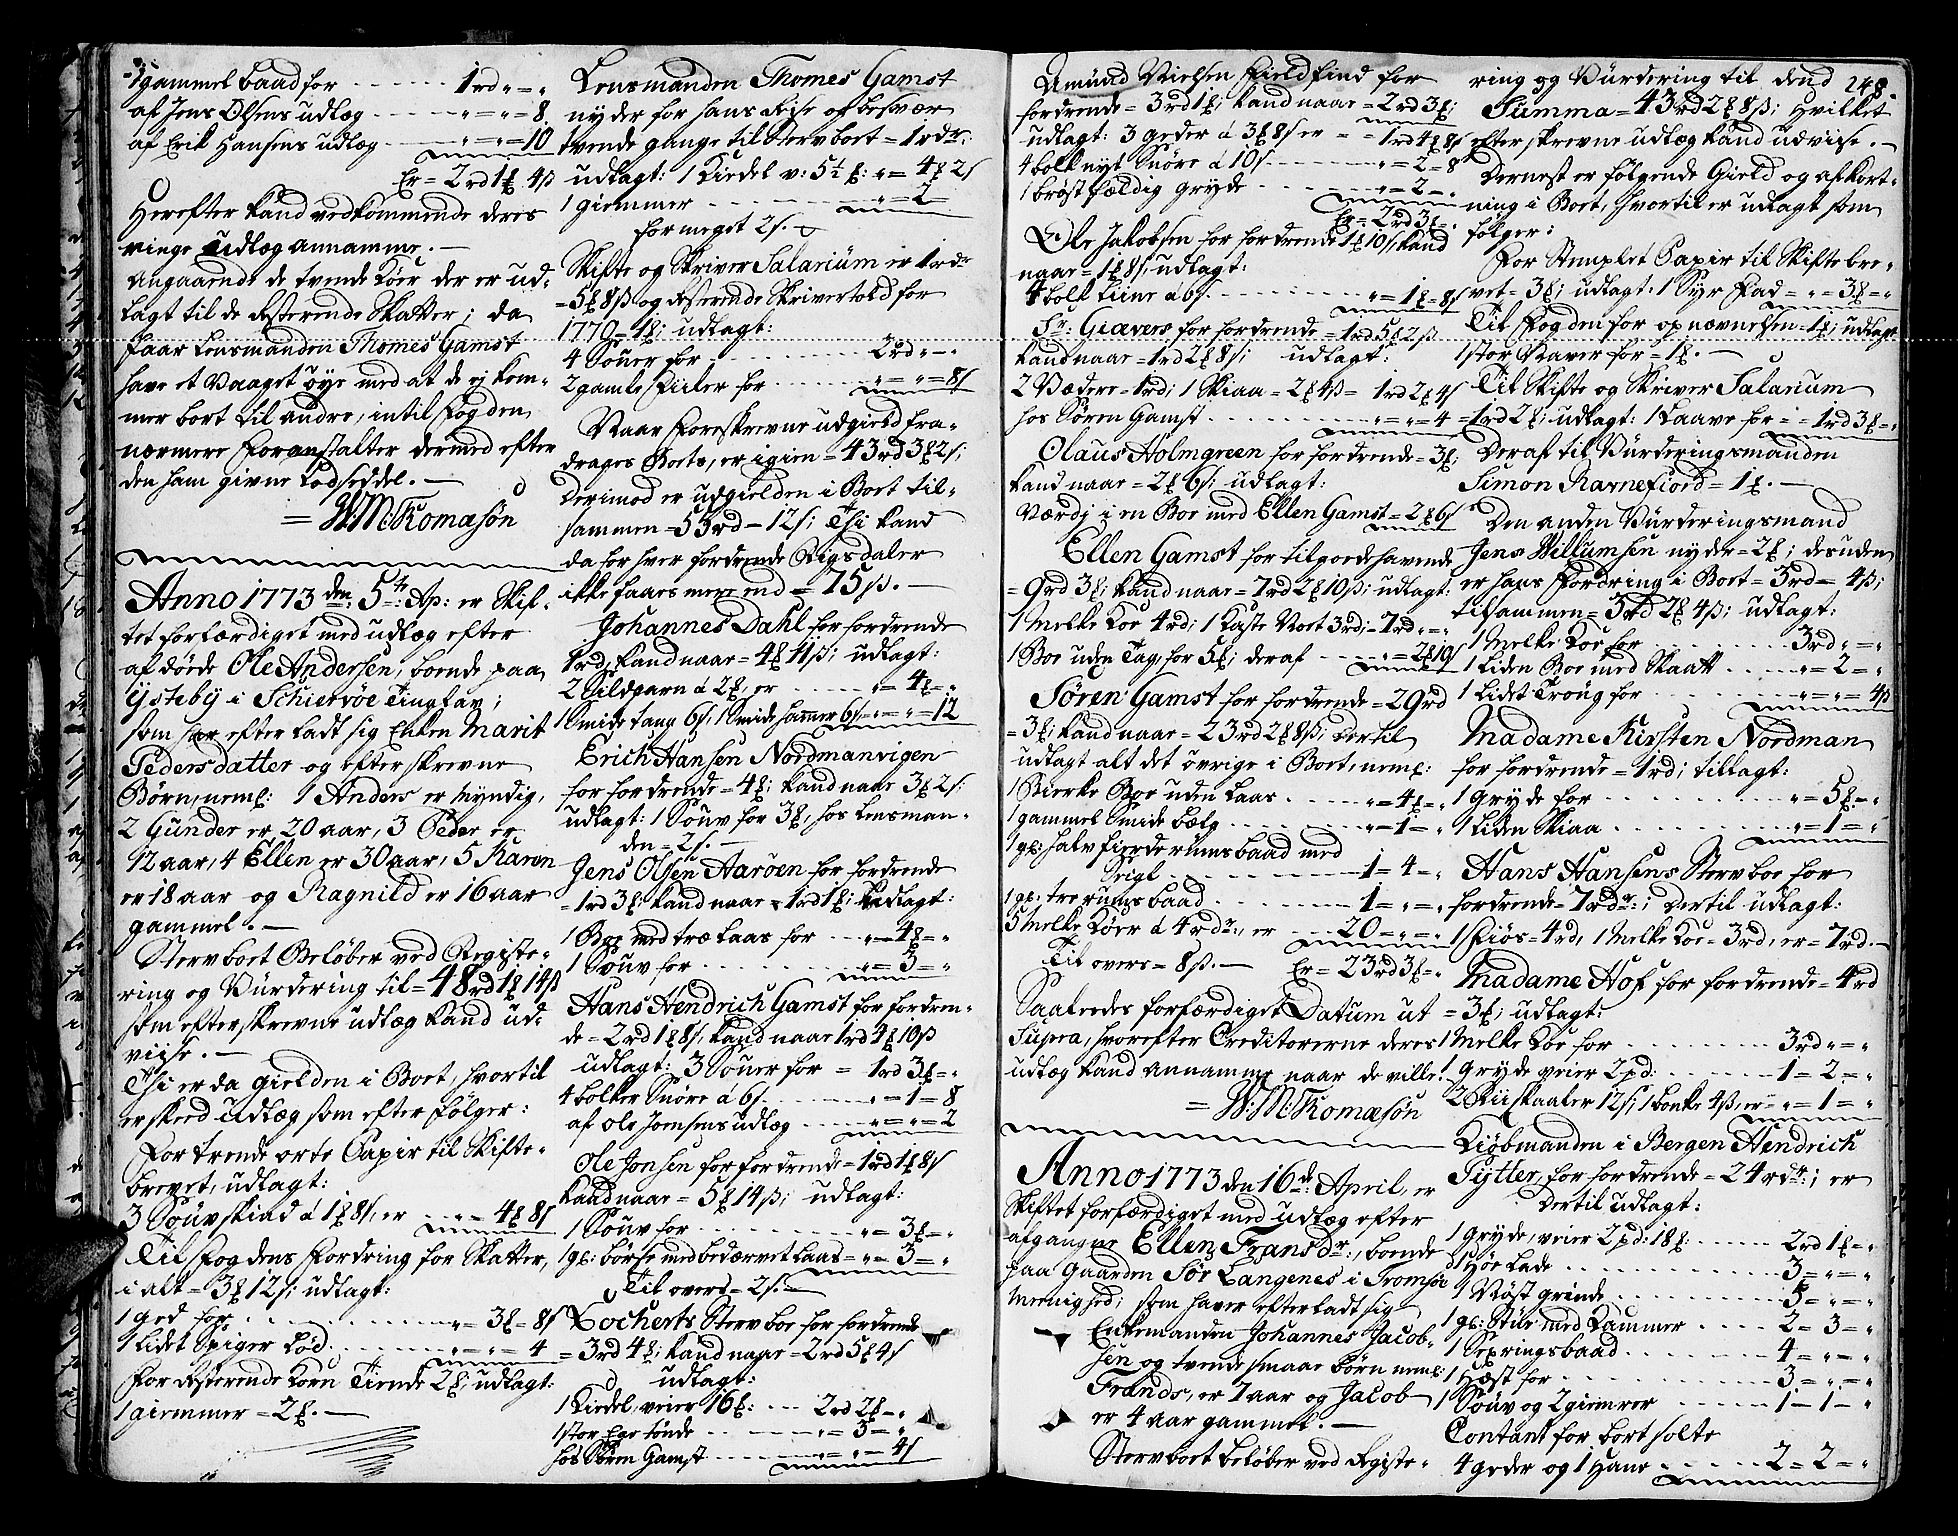 1 gammel baad for - - - - - 1rd „ = „
af Jens Olsens udlæg - - - - „ = „ = 8.
af Erik Hansens udlæg - - - „ = „ = 10
Er = 2rd 1ȝ 4ß
Herefter kand vedkommende deres
ringe udlæg annamme. —
Angaaende de tvende Köer der er ud-
lagt til de resterende Skatter; da
faar Lensmanden Thomes Gamst
have et vaaget öye med at de ej kom-
mer bort til andre, intil Fogden
nærmere foranstalter dermed efter
den ham givne Lodseddel. —
= WM: Tromasön
Anno 1773 den 5te Ap: er Skif-
tet forfærdiget med udlæg efter
afdöde Ole Andersen, boende paa
Ÿstebÿ i Schiervöe Tinglav;
som har efterladt sig Enken Marit
Pedersdatter og efterskrevne
Börn, neml: 1 Anders er mÿndig,
2 Gunder er 20 aar, 3 Peder er
12 aar, 4 Ellen er 30 aar, 5 Karen
er 18 aar og Ragnild er 16 aar
gammel. —
Stervboet Belöber ved Registe-
ring og Vürdering til = 48rd 1ȝ 14ß
som efterskrevne udlæg kand ud-
viise. —
Thi er da gielden i Boet, hvortil
er skeed udlæg som efter fölger:
For trende arte Papir til Skifte-
brevet, udlagt:
3 Souvskind á 1ȝ 8ß, er - - „ = 4ȝ 8ß
Til Fogdens Fordring for Skatter,
i alt = 3ȝ 12ß; udlagt:
1 ged for - - - - - - „ = 3ȝ = 8ß
1 Lidet Spiger Lod - - - - „ = „ = 4
For resterende Korn Tiende 2ȝ, udlagt:
1 giemmer = 2ȝ. —
Lensmanden Thomes Gamst
nyder for hans Reise og besvær
tvende gange til Stervboet = 1rdr:
udlagt: 1 Kiedel v: 5½ ȝ: „ = 4ȝ 2ß
1 giemmer - - - - - - „ = 2 =
for meget 2ß.
Skifte og Skriver Salarium er 1rdr
= 5ȝ 8ß og resterende Skrivertold for
1770 = 1ȝ; udlagt:
4 Souer for - - - - - - 2rd „ - „
2 gamle Fiiler for - - - - „ = „ = 8ß
Naar Foreskrevne udgield fra-
drages Boets, er igien = 43rd 3ȝ 2ß;
Derimod er udgielden i Boet til-
sammen = 55rd — 12ß; Thi kand
da for hver fordrende Rigsdaler
ikke faaes mere end = 75ß. —
Johannes Dahl for fordrende
1rd, kand naar = 4ȝ 11ß; udlagt:
2 Sildgarn á 2ȝ, er - - - - „ = 4ȝ = „
1 Smide tang 6ß, 1 Smide hammer 6ß = „ = „ = 12
Erich Hansen Nordmanvigen
for fordrende = 4ȝ; kand naar 3ȝ 2ß:
udlagt: 1 Souv for 3ȝ, hos Lensman-
den = 2ß. —
Jens Olsen Aaröen for fordrende
= 1rd 3ȝ; kand naar = 1rd 1ȝ; udlagt:
1 Boe med træ Laas for - - - „ = 4ȝ = „
1 Souv for - - - - - - „ = 3 = „
Hans Hendrich Gamst for fordren-
de = 2rd 1ȝ 8ß, kand naar 1rd 4ȝ 10ß
udlagt: 3 Souer for = 1rd 3ȝ = „
4 bolker Snöre á 6ß - - - - „ = 1 = 8
af Ole Joensens udlæg - - - „ = „ = 2
Ole Jonsen for fordrende = 1rd 1ȝ 8ß
kand naar = 5ȝ 14ß; udlagt:
1 Souv for - - - - - - „ = 3ȝ = „
1 gl: börse med bedærvet Laas = „ = 3 = „
Til overs = 2ß. —
Locherts Stervboe for fordrende
= 3rd 4ȝ; kand naar = 2rd 5ȝ 4ß
udlagt:
1 Kiedel, veier 16ȝ: - - - 2rd 2ȝ = „
1 stor Har tönde - - - - „ = 3 = „
hos Sören Gamst - - - - „ = „ = 4ß
Amünd Nielsen Fieldfind for
fordrende = 3rd 1ȝ; kand naar = 2rd 3ȝ;
udlagt: 3 geder á 3ȝ 8ß er = - 1rd 4ȝ 8ß
4 bolk nyt Snöre á 10ß - - - - „ = 2 = 8
1 bröstfældig gryde - - - - „ = 2 = „
Er = 2rd 3ȝ = „
Ole Jakobsen for fordrende 1ȝ 10ß, kand
naar = 1ȝ 8ß; udlagt:
4 bolk Liine á 6ß - - - - „ = 1ȝ = 8ß
Sr: Giævers for fordrende = 1rd 5ȝ 2ß
kand naar = 1rd 2ȝ 8ß; udlagt:
2 Vædere = 1rd; 1 Skiaa = 2ȝ 4ß = 1rd 2ȝ 4ß
hos Sören Gamst - - - - „ = „ = 4
Olaus Holmgreen for fordrende = 3ȝ;
kand naar = 2ȝ 6ß; udlagt:
værdj i en Boe med Ellen Gamst = 2ȝ 6ß
Ellen Gamst for tilgodehavende
= 9rd 3ȝ; kand naar = 7rd 2ȝ 10ß; udlagt:
1 Melke Koe 4rd; 1 Kaste Noet 3rd; = 7rd = „
1 Boe uden Tag, for 5ȝ; deraf - - = 2ȝ 10ß
Sören Gamst for fordrende = 29rd
= 3ȝ; kand naar = 23rd 2ȝ 8ß; Dertil
udlagt alt det övrige i Boet, neml:
1 Bierke Boe uden Laas - - - „ = 4ȝ = „
1 gammel Smide bælg - - - - „ = 1 = „
1 gl: halv fierderumsbaad med
Seigl - - - - - - 1 = 4 = „
1 gl: trerumsbaad - - - - 1 = „ = „
5 Melke Köer á 4rdr:, er - - - 20 = „ = „
Til overs = 8ß. — Er = 23rd 3ȝ = „
Saaledes forfærdiget Datum ut
Supra, hvorefter Creditorerne deres
udlæg kand annamme naar de ville!
= W: M: Tromasön
Anno 1773 den 16de: April, er
Skiftet forfærdiget med udlæg efter
afgangne Ellen Fransdr:, boende
paa Gaarden Sör Langenes i Tromsöe
Meenighed; som haver efterladt sig
Enkemanden Johannes Jacob-
sen og tvende smaae börn neml:
Frands, er 7 aar og Jacob
er 4 aar gammel. —
Stervboet beløber ved Registe-
248.
ring og Vürdering til dend
Summa = 43rd 2ȝ 8ß; hvilket
efterskrevne udlæg kand udviise. —
Dernest er fölgende Gield og afkort-
ning i Boet, hvortil er udlagt som
fölger:
For Stemplet Papir til Skiftebre-
vet = 3ȝ; udlagt: 1 Syr Fad = „ = 3ȝ = „
Til Fogden for opnævnelsen = 1ȝ; udlagt
1 stor Naver for = 1ȝ. —
Til Skifte og Skriver Salarium
= 1rd 2ȝ; udlagt: 1 Kaave for - - 1rd 3ȝ = „
Deraf til Vürderingsmanden
Simon Ravnefiord = 1ȝ. —
Den anden Vürderingsmand
Jens Willumsen nyder = 2ȝ; desuden
er hans Fordring i Boet = 3rd — 4ß;
tilsammen = 3rd 2ȝ 4ß; udlagt:
1 Melke Koe for - - - - 3rd „ = „
1 Liden Boe med Skaatt - - - „ = 2 = „
1 Lidet Troug for - - - - „ = „ = 4ß
Madame Kirsten Nordman
for fordrende = 1rd; tillagt:
1 Gryde for - - - - - - „ = 5ȝ = „
1 Liden Skiaa - - - - - „ = 1 = „
Hans Hansens Stervboe for
fordrende = 7rdr:; Dertil udlagt:
1 Fiös = 4rd, 1 Melke Koe = 3rd, er = 7rd. —
Madame Hof for fordrende = 4rd
= 3ȝ; udlagt:
1 Melke Koe for - - - - 3rd „ = „
1 Gryde veier 2pd: - - - - 1 = 2 = „
2 Riiskaaler 12ß; 1 bonke 4ß, er = „ = 1 = „
Kiöbmanden i Bergen Hendrich
Sÿtter, for fordrende = 24rdr:; er
Dertil udlagt:
1 Gryde, veier 2pd: 18ȝ: - - - 2rd 1ȝ = „
1 Höe Lade - - - - - - 3 = „ = „
1 Nöst grinde - - - - - 5 = „ = „
1 gl: Stue med Kammer - - - 2 = 3 = „
1 Sexringsbaad - - - - - 4 = „ = „
1 Hæst for - - - - - - 3 = „ = „
1 Souv og 2 giemrer - - - - 1 = 1 = „
Contant for bortsolte
4 geder og 1 Hane - - - - 2 = 2 = „